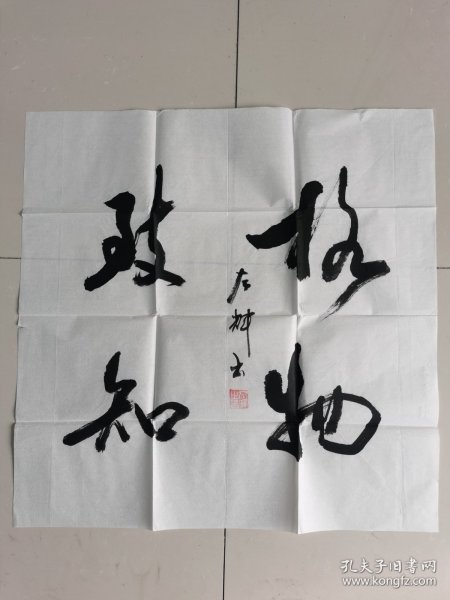 格物
致知
左辉书
孔夫子旧书网
www.kongfz.com